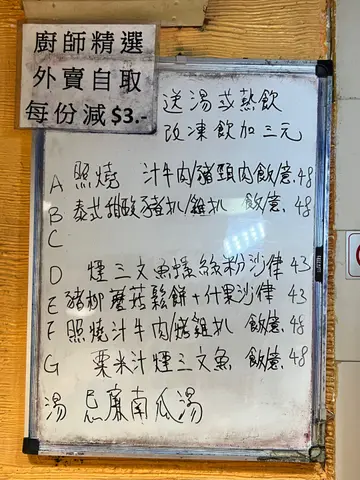 廚師精選
外賣自取
每份減 $3.-
送湯或熱飲
改凍飲加三元
A 照燒 汁牛肉/豬頸肉飯/意. 48
B 泰式甜酸豬扒/雞扒 飯/意. 48
C
D 煙三文魚蟹絲粉沙律 43
E 豬柳蘑菇鬆餅+什果沙律 43
F 照燒汁牛肉/烤雞扒 飯/意. 48
G 粟米汁煙三文魚 飯/意. 48
湯 忌廉南瓜湯